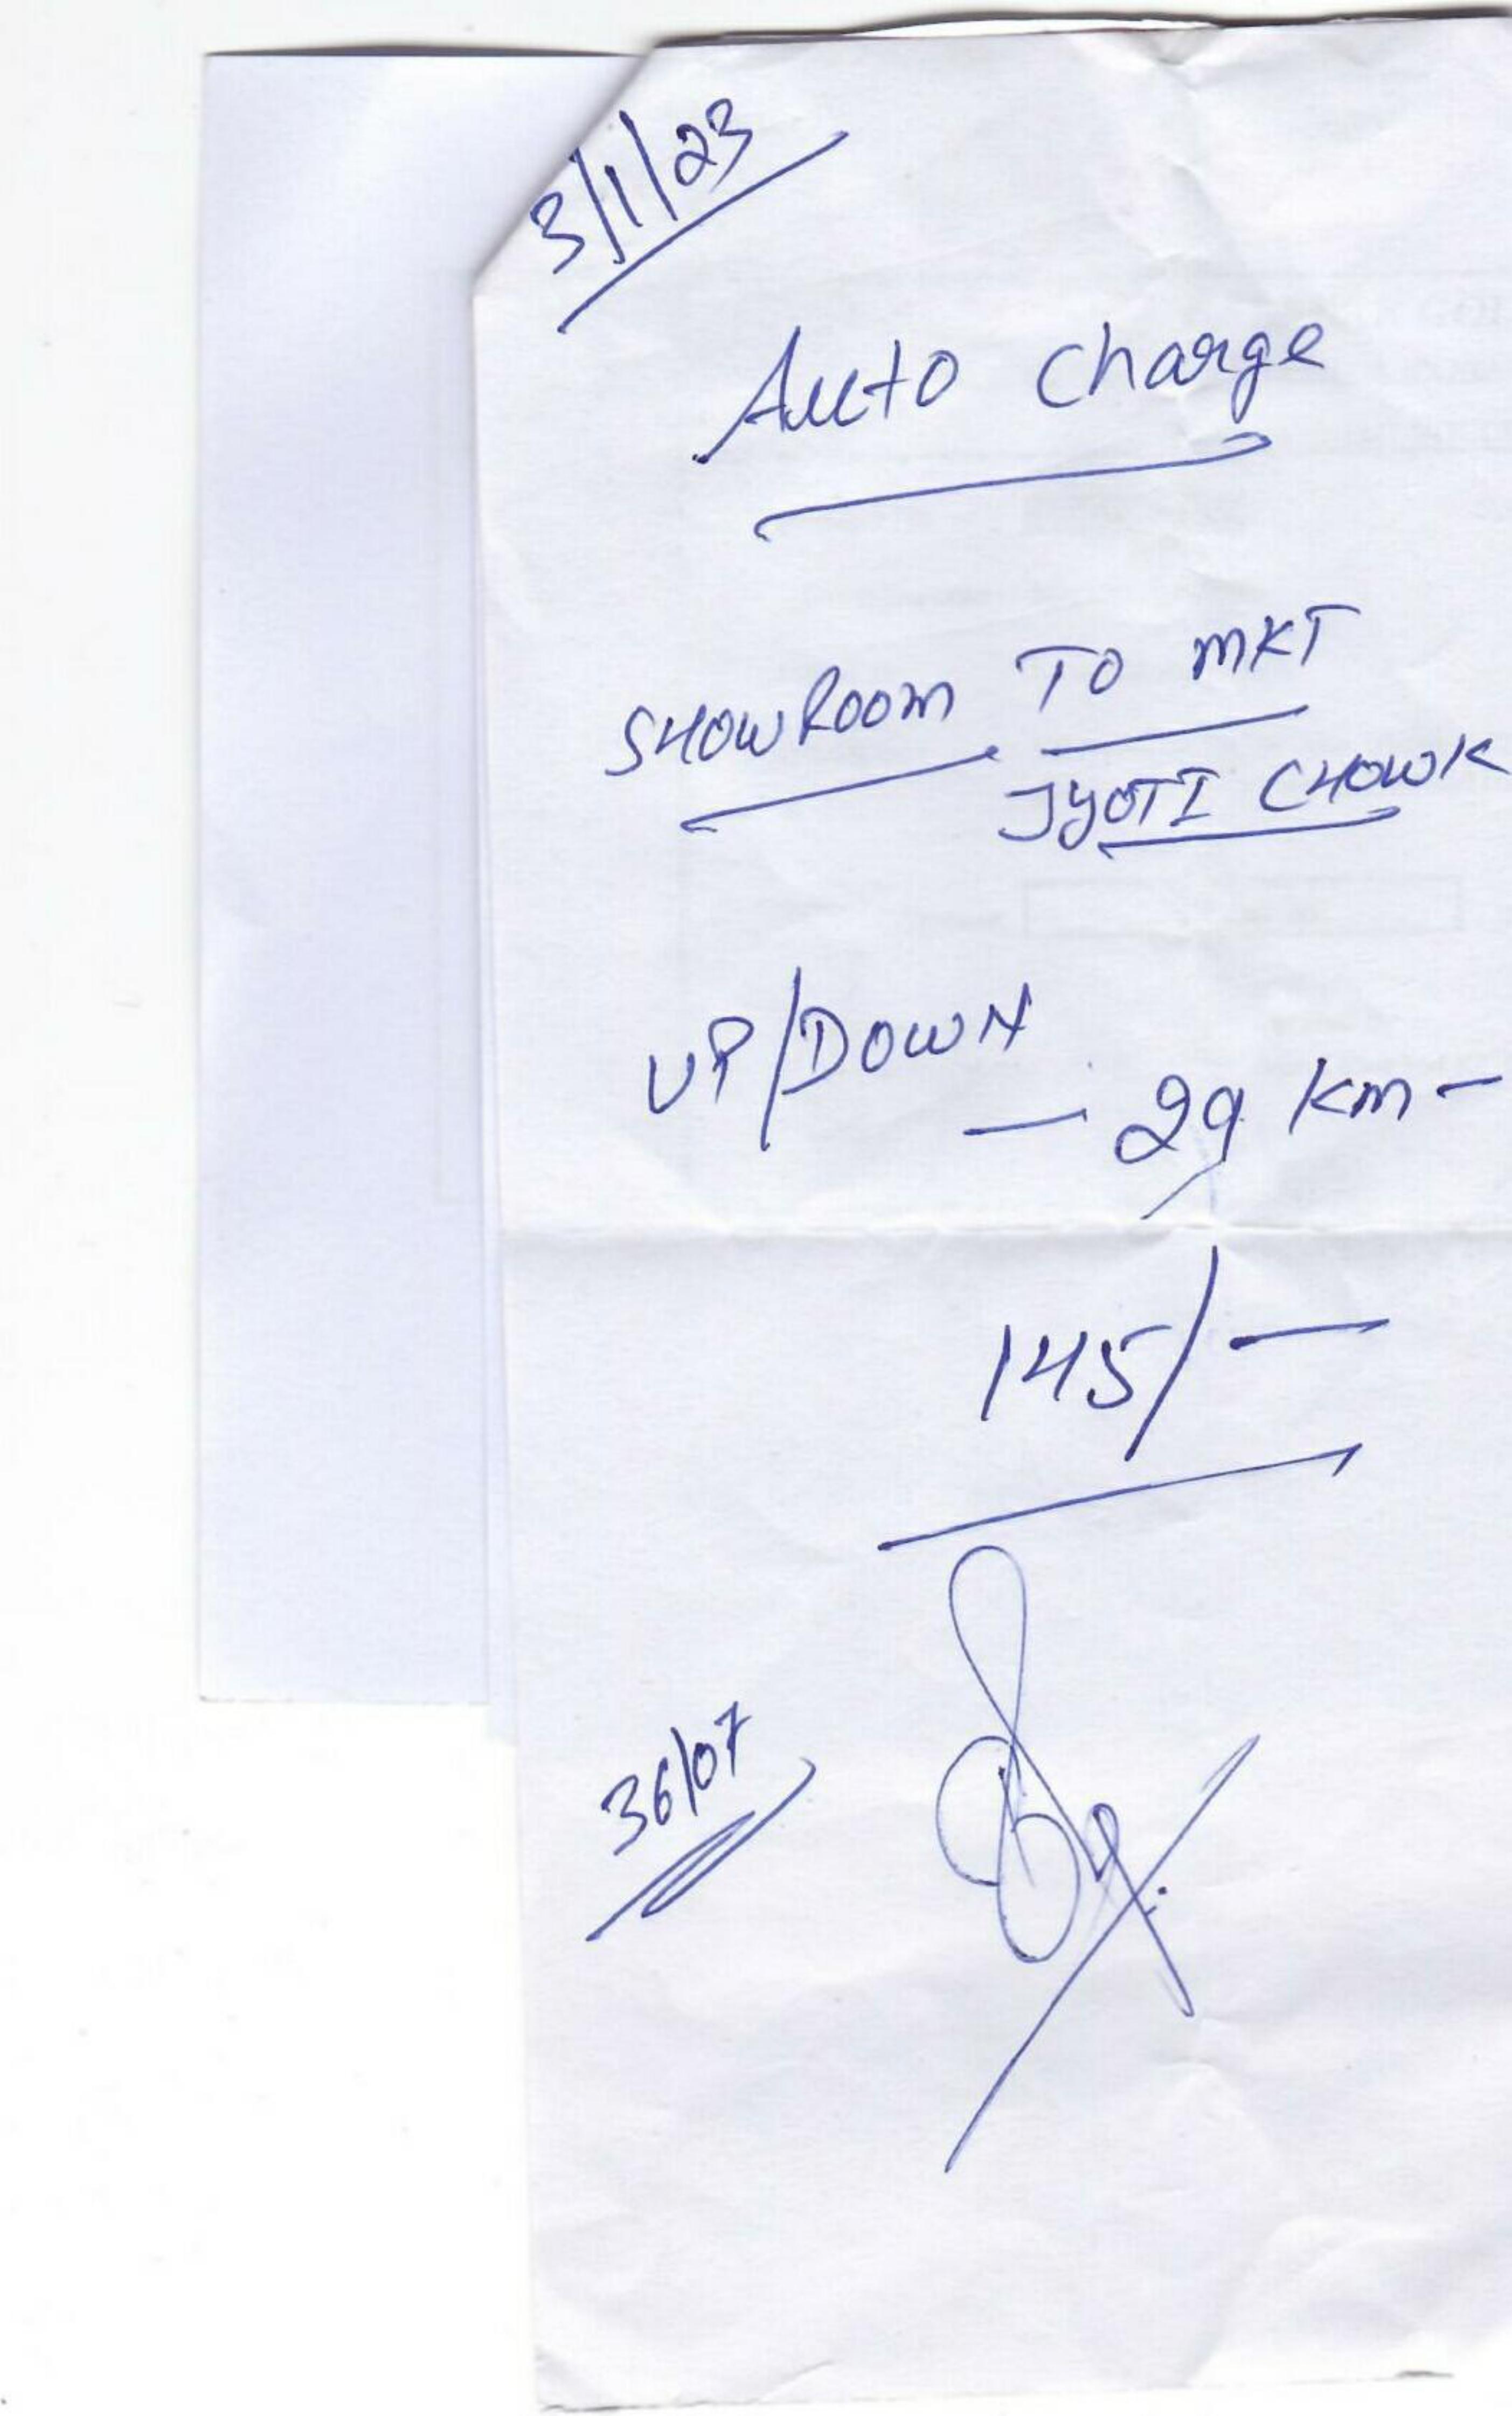 3/1/23
Auto charge
SHOWROOM TO MKT
JYOTI CHOWK
UP/DOWN
- 29 Km -
145/-
3607